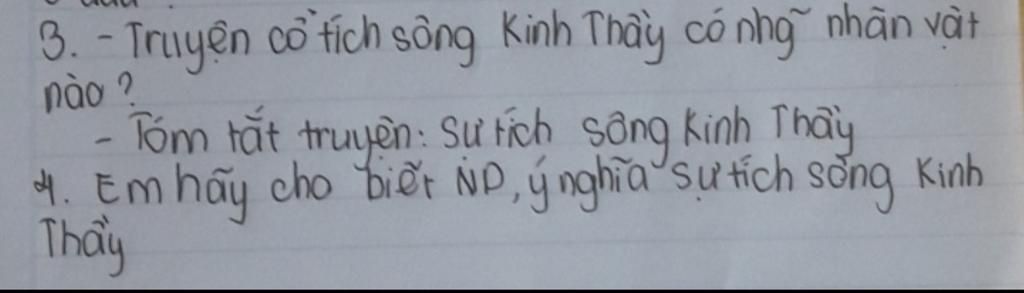 3. - Truyện cổ tích sông Kinh Thầy có nhg̃ nhân vật
nào?
- Tóm tắt truyện: Sự tích sông Kinh Thầy
4. Em hãy cho biết ND, ý nghĩa sự tích sông Kinh
Thầy